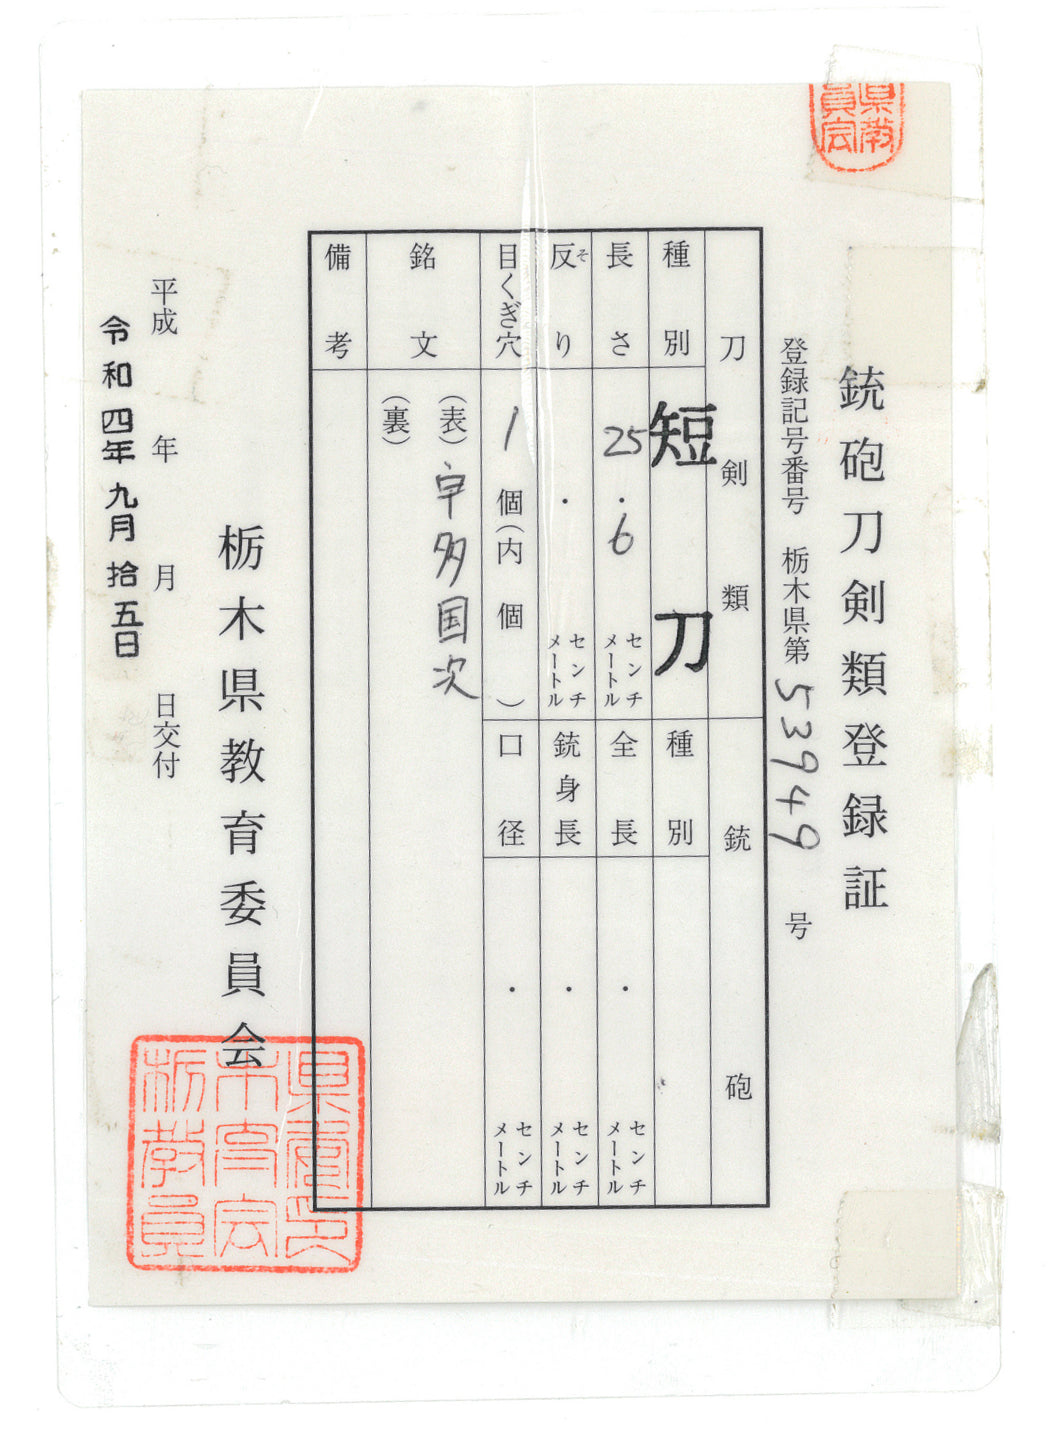 県教
員会
銃砲刀剣類登録証
登録記号番号 栃木県第53949号
刀剣類
種別 短刀
長さ 25.6 センチメートル
反り そ . センチメートル
目くぎ穴 1個(内 個)
銘文 (表)宇多国次
(裏)
備考
銃砲
種別
全長 . センチメートル
銃身長 . センチメートル
口径 . センチメートル
栃木県教育委員会
平成 年 月 日交付
令和四年九月拾五日